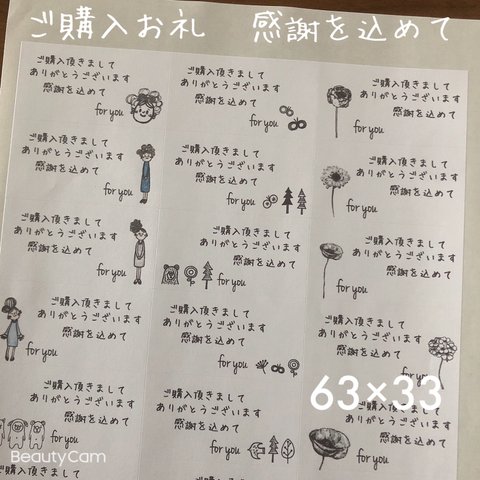 ご購入お礼 感謝を込めて
ご購入頂きまして
ありがとうございます
感謝を込めて
for you
ご購入頂きまして
ありがとうございます
感謝を込めて
for you
ご購入頂きまして
ありがとうございます
感謝を込めて
for you
ご購入頂きまして
ありがとうございます
感謝を込めて
for you
ご購入頂きまして
ありがとうございます
感謝を込めて
for you
ご購入頂きまして
ありがとうございます
感謝を込めて
for you
ご購入頂きまして
ありがとうございます
感謝を込めて
for you
ご購入頂きまして
ありがとうございます
感謝を込めて
for you
ご購入頂きまして
ありがとうございます
感謝を込めて
for you
ご購入頂きまして
ありがとうございます
感謝を込めて
for you
ご購入頂きまして
ありがとうございます
感謝を込めて
for you
ご購入頂きまして
ありがとうございます
感謝を込めて
for you
63×33
ご購入頂きまして
ありがとうございます
感謝を込めて
for you
ご購入頂きまして
ありがとうございます
感謝を込めて
for you
ご購入頂きまして
ありがとうございます
感謝を込めて
for you
BeautyCam
ご購入頂きまして
ご購入頂きまして